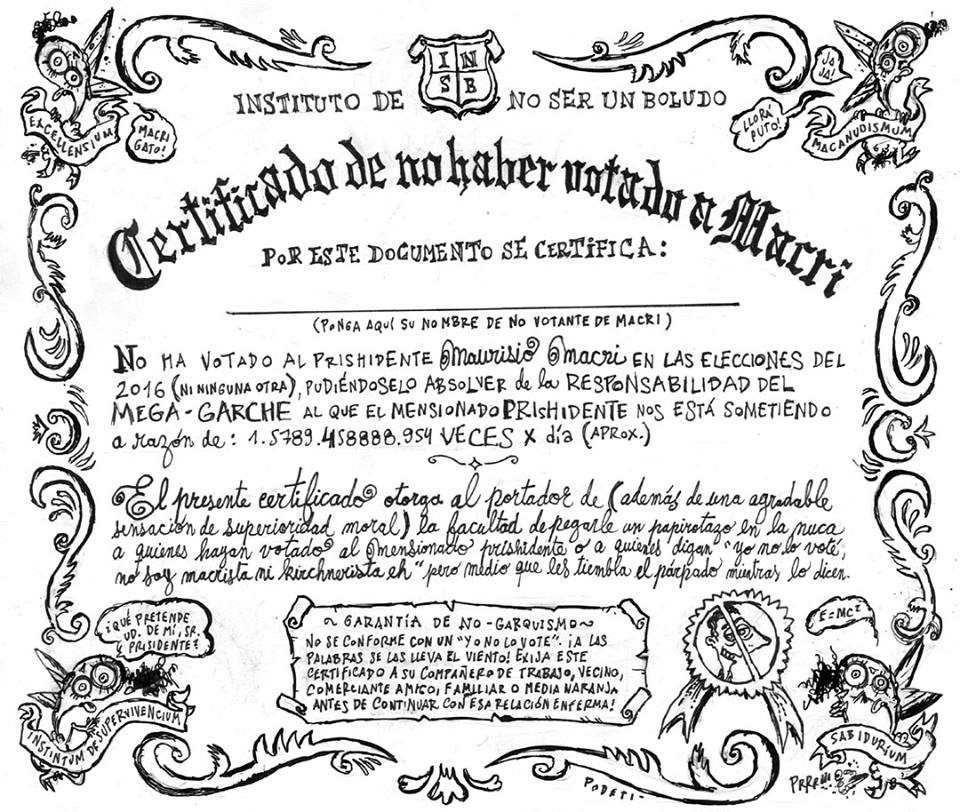 IN
SB
INSTITUTO DE NO SER UN BOLUDO
EXCELLENSIUM
MACRI
GATO!
JA
JA!
LLORA
PUTO!
MACANUDISMUM
Certificado de no haber votado a Macri
POR ESTE DOCUMENTO SE CERTIFICA:
(PONGA AQUÍ SU NOMBRE DE NO VOTANTE DE MACRI)
NO HA VOTADO AL PRISHIDENTE Maurisio Macri EN LAS ELECCIONES DEL
2016 (NI NINGUNA OTRA), PUDIÉNDOSELO ABSOLVER de la RESPONSABILIDAD DEL
MEGA-GARCHE AL QUE EL MENSIONADO PRISHIDENTE NOS ESTÁ SOMETIENDO
a razón de: 1.5789.458888.954 VECES X día (APROX.)
El presente certificado otorga al portador de (además de una agradable
sensación de superioridad moral) la facultad de pegarle un papirotazo en la nuca
a quienes hayan votado al mensionado prishidente o a quienes digan "yo no lo voté,
no soy macrista ni kirchnerista eh" pero medio que les tiembla el párpado mientras lo dicen.
¿QUÉ PRETENDE
UD. DE MÍ, SR.
PRISIDENTE?
INSTINTUM DE SUPERVIVENCIUM
~ GARANTÍA DE NO-GARQUISMO ~
NO SE CONFORME CON UN "YO NO LO VOTE". ¡A LAS
PALABRAS SE LAS LLEVA EL VIENTO! EXIJA ESTE
CERTIFICADO A SU COMPAÑERO DE TRABAJO, VECINO,
COMERCIANTE AMIGO, FAMILIAR O MEDIA NARANJA
ANTES DE CONTINUAR CON ESA RELACIÓN ENFERMA!
E=MC2
SABIDURIUM
PODETI-